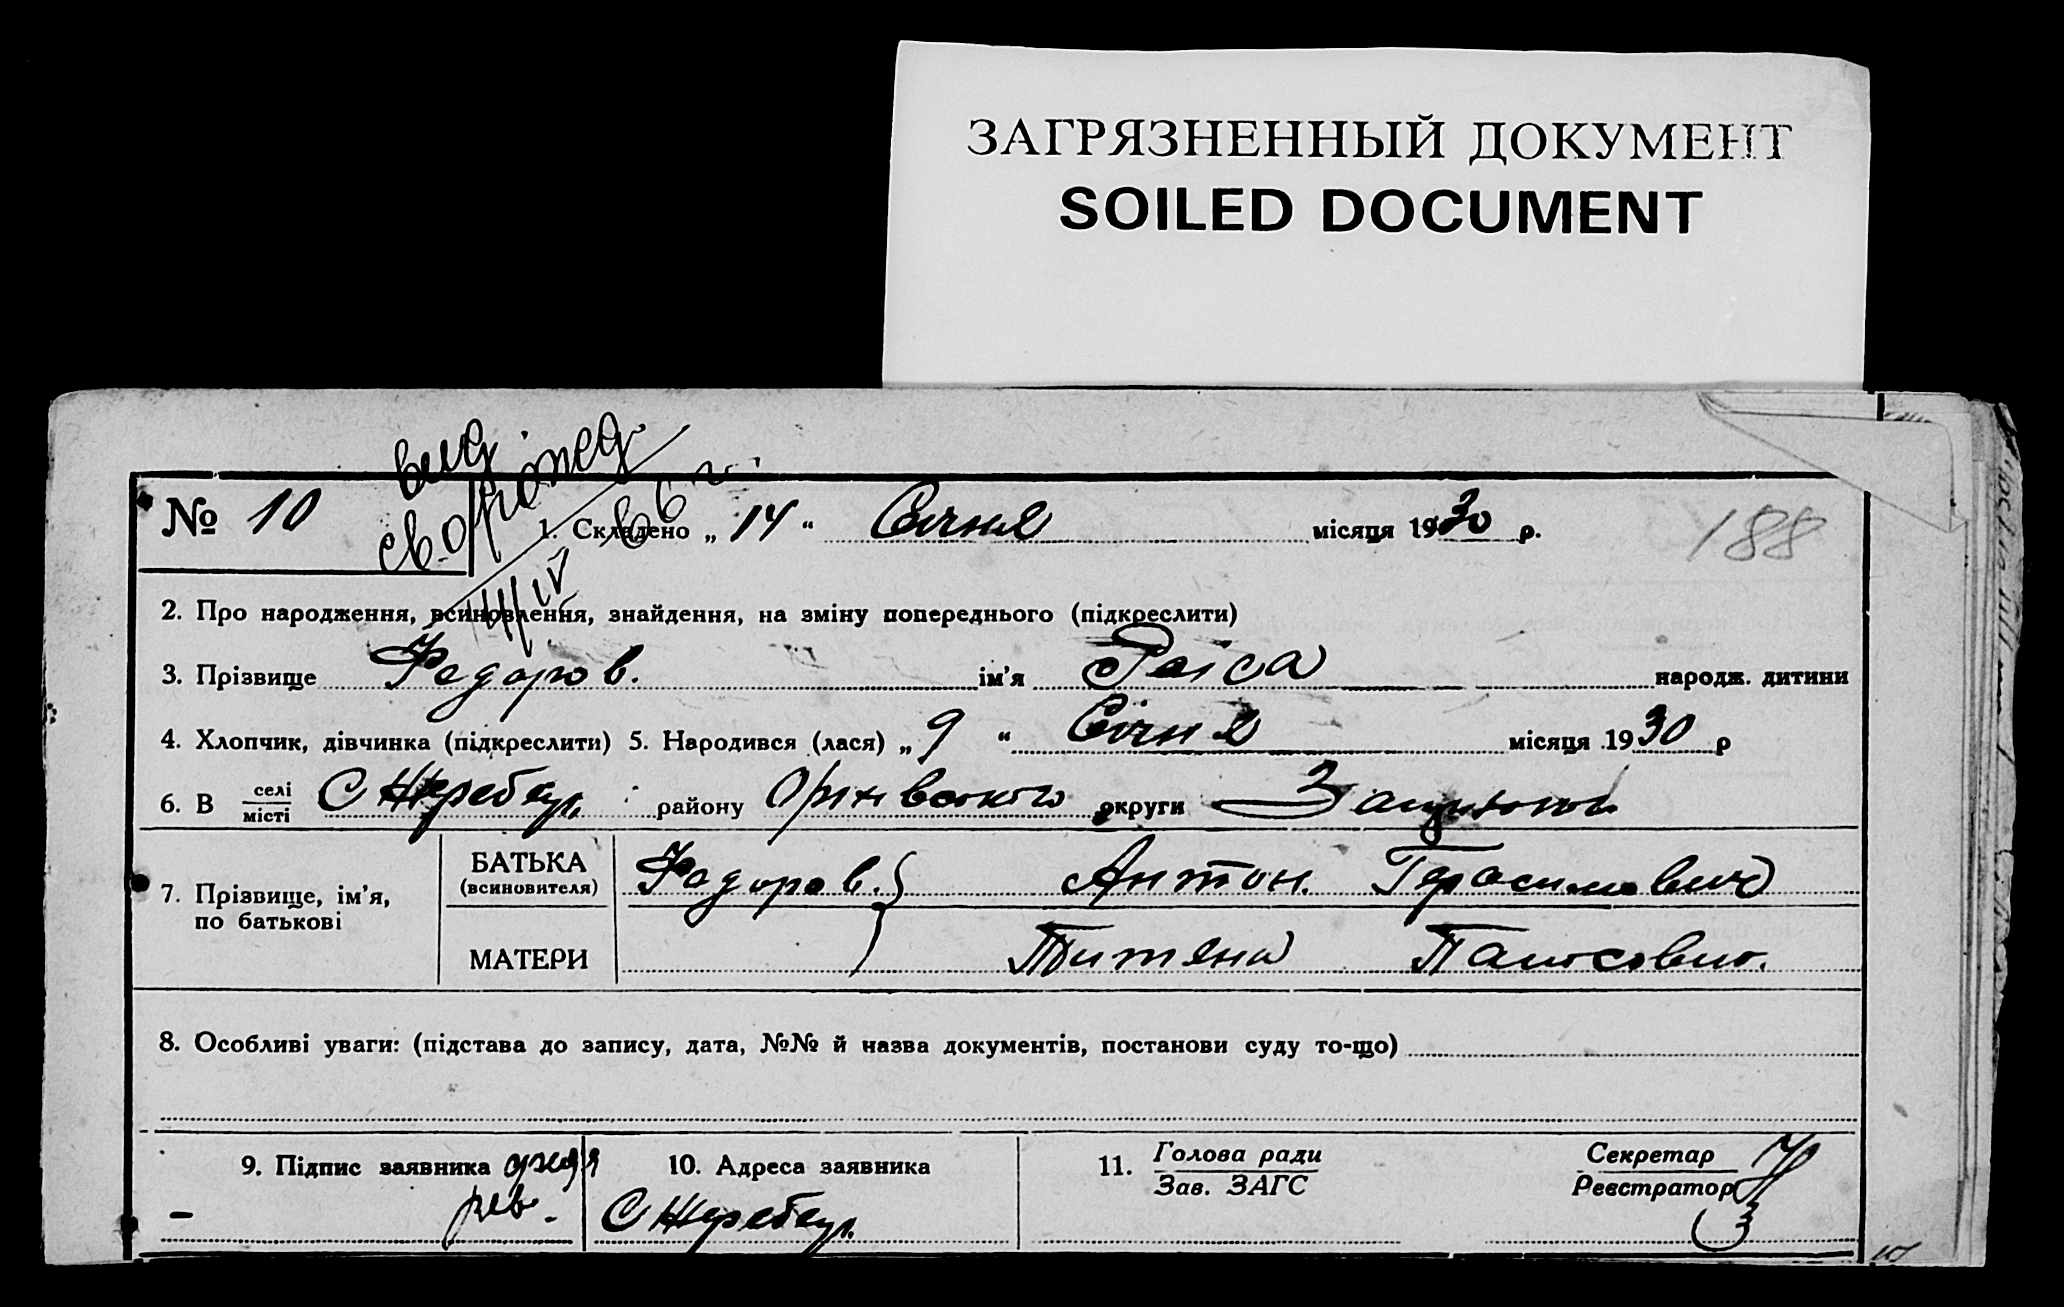 ЗАГРЯЗНЕННЫЙ ДОКУМЕНТ
SOILED DOCUMENT
№ 10
1. Складено „ 14 “ Січня місяця 1930 р.
188
2. Про народження, всиновлення, знайдення, на зміну попереднього (підкреслити)
3. Прізвище Федоров. ім'я Раїса народж. дитини
4. Хлопчик, дівчинка (підкреслити) 5. Народився (лася) „ 9 “ Січня місяця 1930 р
6. В селі/місті С Жеребец. району Оріхівського округи
7. Прізвище, ім'я, по батькові
БАТЬКА (всиновителя) Федоров. Антон. Герасимович
МАТЕРИ Титяна
8. Особливі уваги: (підстава до запису, дата, №№ й назва документів, постанови суду то-що)
9. Підпис заявника
10. Адреса заявника
С Жеребец.
11. Голова ради
Зав. ЗАГС
Секретар
Реєстратор